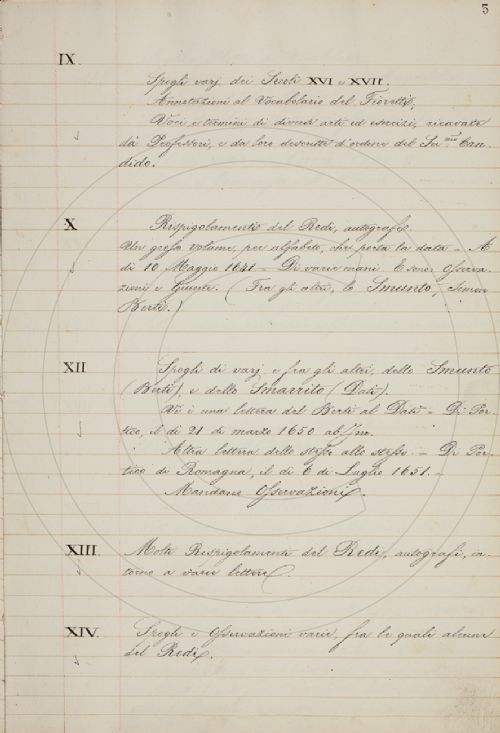 3
IX.
Spogli varj dei Secoli XVI e XVII.
Annotazioni al Vocabolario del Fioretti.
Voci e termini di diverse arti ed esercizi, ricavate
da' Professori, e da loro descritte d'ordine del Ser.mo Can-
dido.
X
Rispigolamenti del Redi, autografi.
Un grosso volume, per alfabeto, che porta la data = A
di 10 Maggio 1641 = Di varie mani. E sono Osserva-
zioni e Giunte. (Fra gli altri, lo Smunto, Simon
Berti.)
XII
Spogli di varj, e fra gli altri, dello Smunto
(Berti), e dello Smarrito (Dati).
Vi è una lettera del Berti al Dati = Di Por-
tico, il dì 21 di marzo 1650 ab Inc.
Altra lettera dello stesso allo stesso = Di Por-
tico di Romagna, il dì 6 di Luglio 1651. =
Mandano Osservazioni.
XIII.
Molti Rispigolamenti del Redi, autografi, in-
torno a varie lettere.
XIV.
Spogli e Osservazioni varie, fra le quali alcune
del Redi.